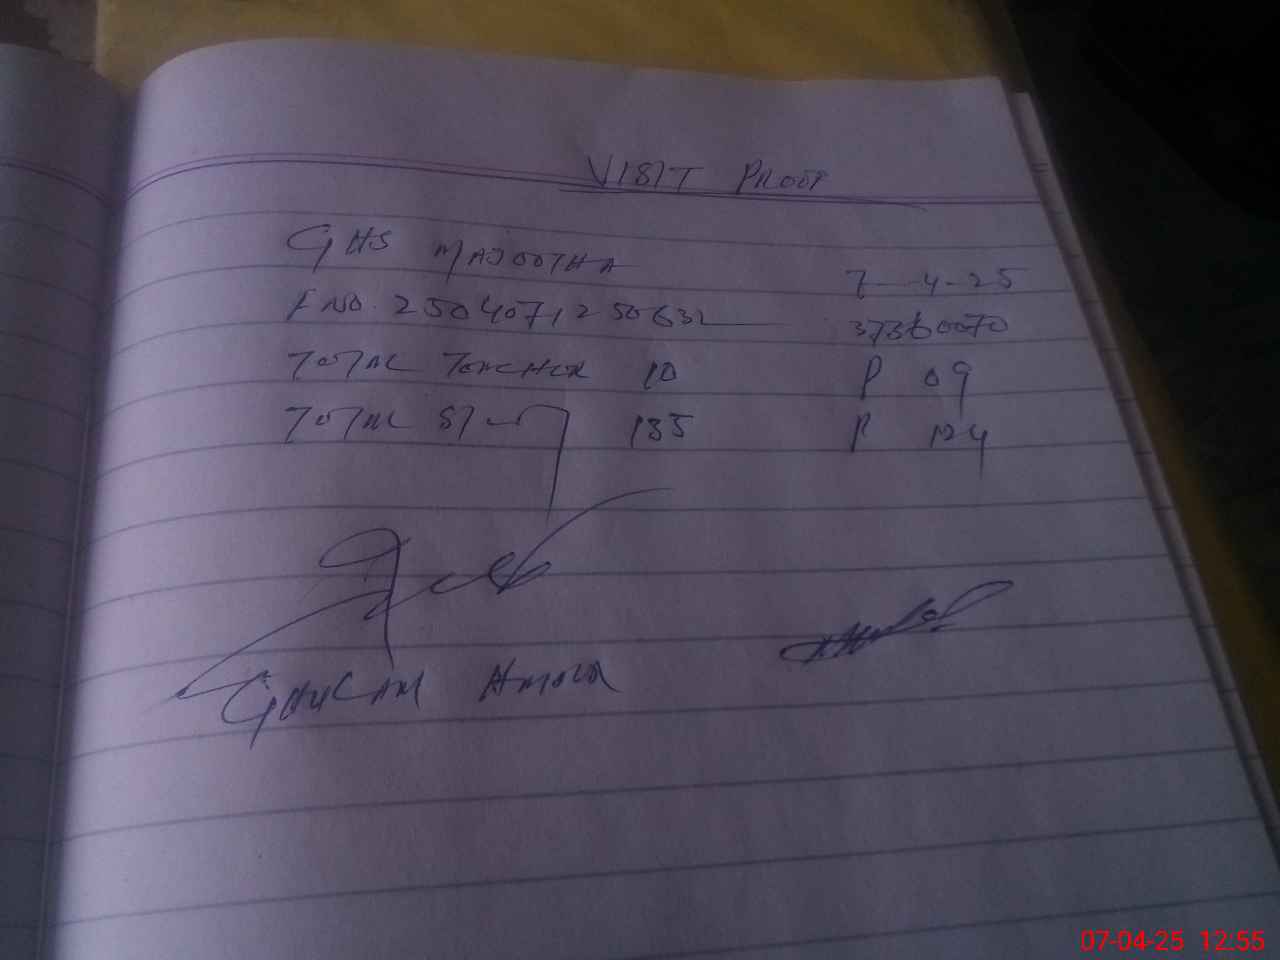 VISIT PROOF
GHS MAJOOTHA 7-4-25
F NO. 2504071250632 37360070
TOTAL TEACHER 10 P 09
TOTAL 135 P 124
07-04-25 12:55